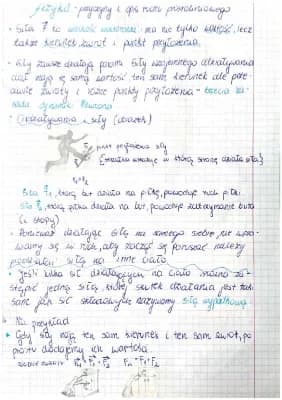 fizyka - przyczyny i opis ruchu prostoliniowego
• Siła F to wielkość wektorowa: ma nie tylko wartość, lecz
także kierunek zwrot i punkt przyłożenia.
• Siły zawsze działają parami. Siły wzajemnego oddziaływania
ciał mają tę samą wartość, ten sam kierunek ale prze-
ciwne zwroty i różne punkty przyłożenia - trzecia za-
sada dynamiki Newtona
• Oddziaływania siły (obrazek)
punkt przyłożenia siły
(strzałka wskazuje w którą stronę działa siła)
F₁=F₂
Siła F₁, którą but działa na piłkę, powoduje ruch piłki.
Siła F₂, którą piłka działa na but, powoduje zatrzymanie buta
(i stopy)
• Ponieważ działając siłą na samego siebie nie wpra-
wiamy się w ruch, aby zacząć się poruszać należy
podziałać siłą na inne ciało
• Jeśli kilka sił działających na ciało można za-
stąpić jedną siłą, której skutek działania jest taki
sam jak sił składowych nazywamy siłą wypadkową.
Na przykład
• Gdy siły mają ten sam kierunek i ten sam zwrot, po
prostu dodajemy ich wartości.
F = F₁ + F₂